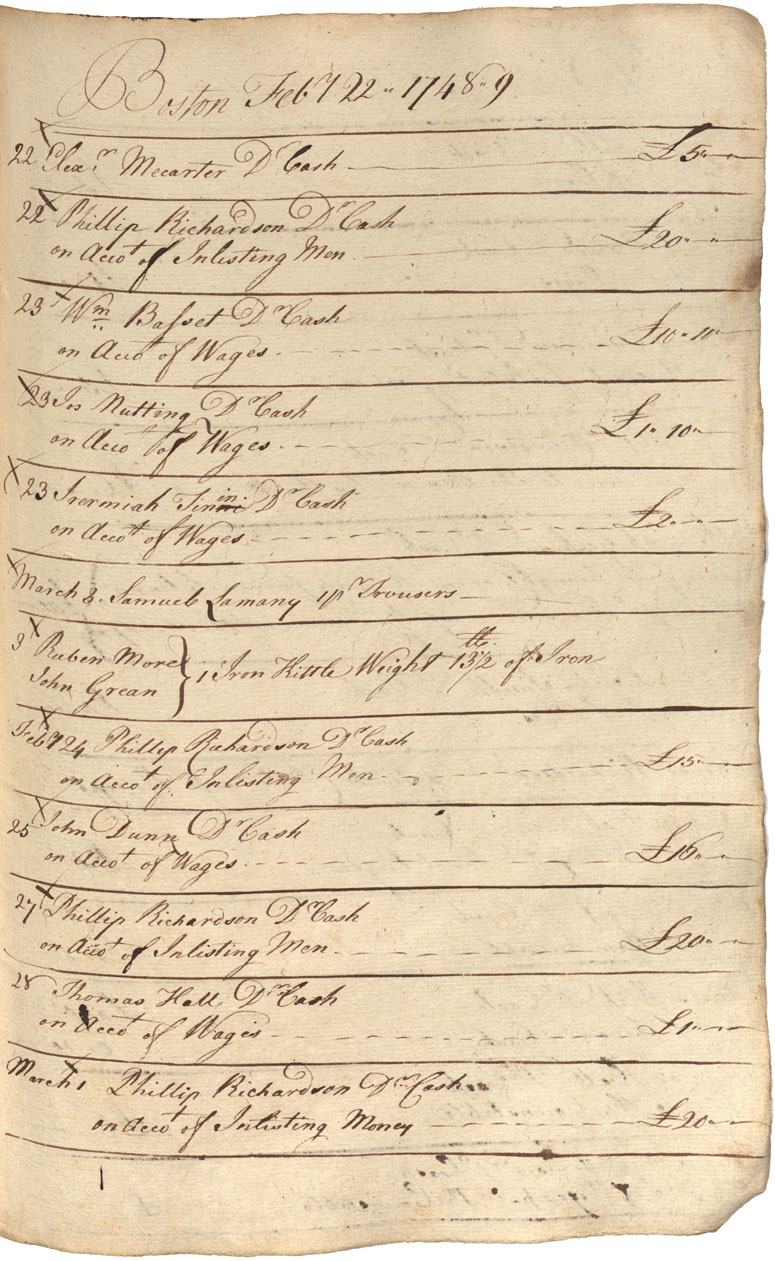 Boston Feby 22" 1748"9
22 Elexr Mecarter Dr Cash £5"
22 Phillip Richardson Dr Cash
on Accot of Inlisting Men £20"
23 Wm Basset Dr Cash
on Accot of Wages £10"10"
23 Jos Nutting Dr Cash
on Accot of Wages £1"10"
23 Jreremiah Tinnin Dr Cash
on Accot of Wages £2"
March 8. Samuel Lamany 1 pr Trousers
3 Ruben More
John Grean } 1 Iron Kittle Weight 13 1/2 lb of Iron
Feby 24 Phillip Richardson Dr Cash
on Accot of Inlisting Men £15"
25 John Dunn Dr Cash
on Accot of Wages £16"
27 Phillip Richardson Dr Cash
on Accot of Inlisting Men £20"
28 Thomas Hall Dr Cash
on Accot of Wages £1"
March 1 Phillip Richardson Dr Cash
on Accot of Inlisting Money £20"